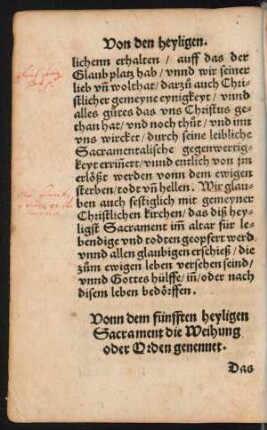 Von den heyligen.
lichenn erhalten / auff das der
Glaub platz hab / vnnd wir seiner
lieb vñ wolthat / darzů auch Chri-
stlicher gemeyne eynigkeyt / vnnd
alles gůtes das vns Christus ge-
than hat / vnd noch thůt / vnd inn
vns wircket / durch seine leibliche
Sacramentalische gegenwertig-
keyt erriñert / vnnd entlich von jm
erlößt werden vonn dem ewigen
sterben / todt vñ hellen. Wir glau-
ben auch festiglich mit gemeyner
Christlichen kirchen / das diß hey-
ligst Sacrament im̃ altar für le-
bendige vnd todten geopfert werd
vnnd allen glaubigen erschieß / die
zům ewigen leben versehen seind /
vnnd Gottes hülffe / iñ / oder nach
disem leben bedörffen.
Vonn dem fünfften heyligen
Sacrament die Weihung
oder Orden genennet.
Das